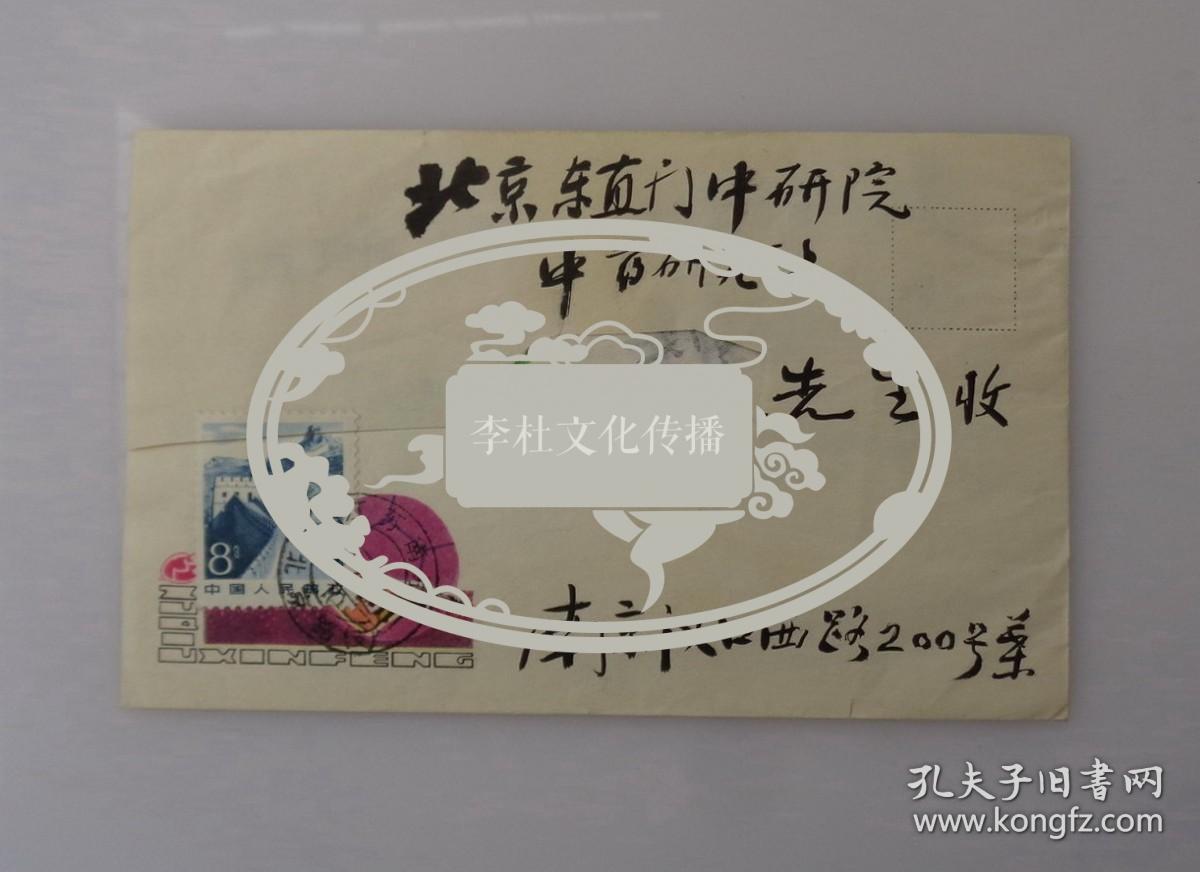 北京东直门中研院
中药研究
先生收
李杜文化传播
8分
中国人民邮政
南京汉口西路200号叶
XINFENG
孔夫子旧书网
www.kongfz.com